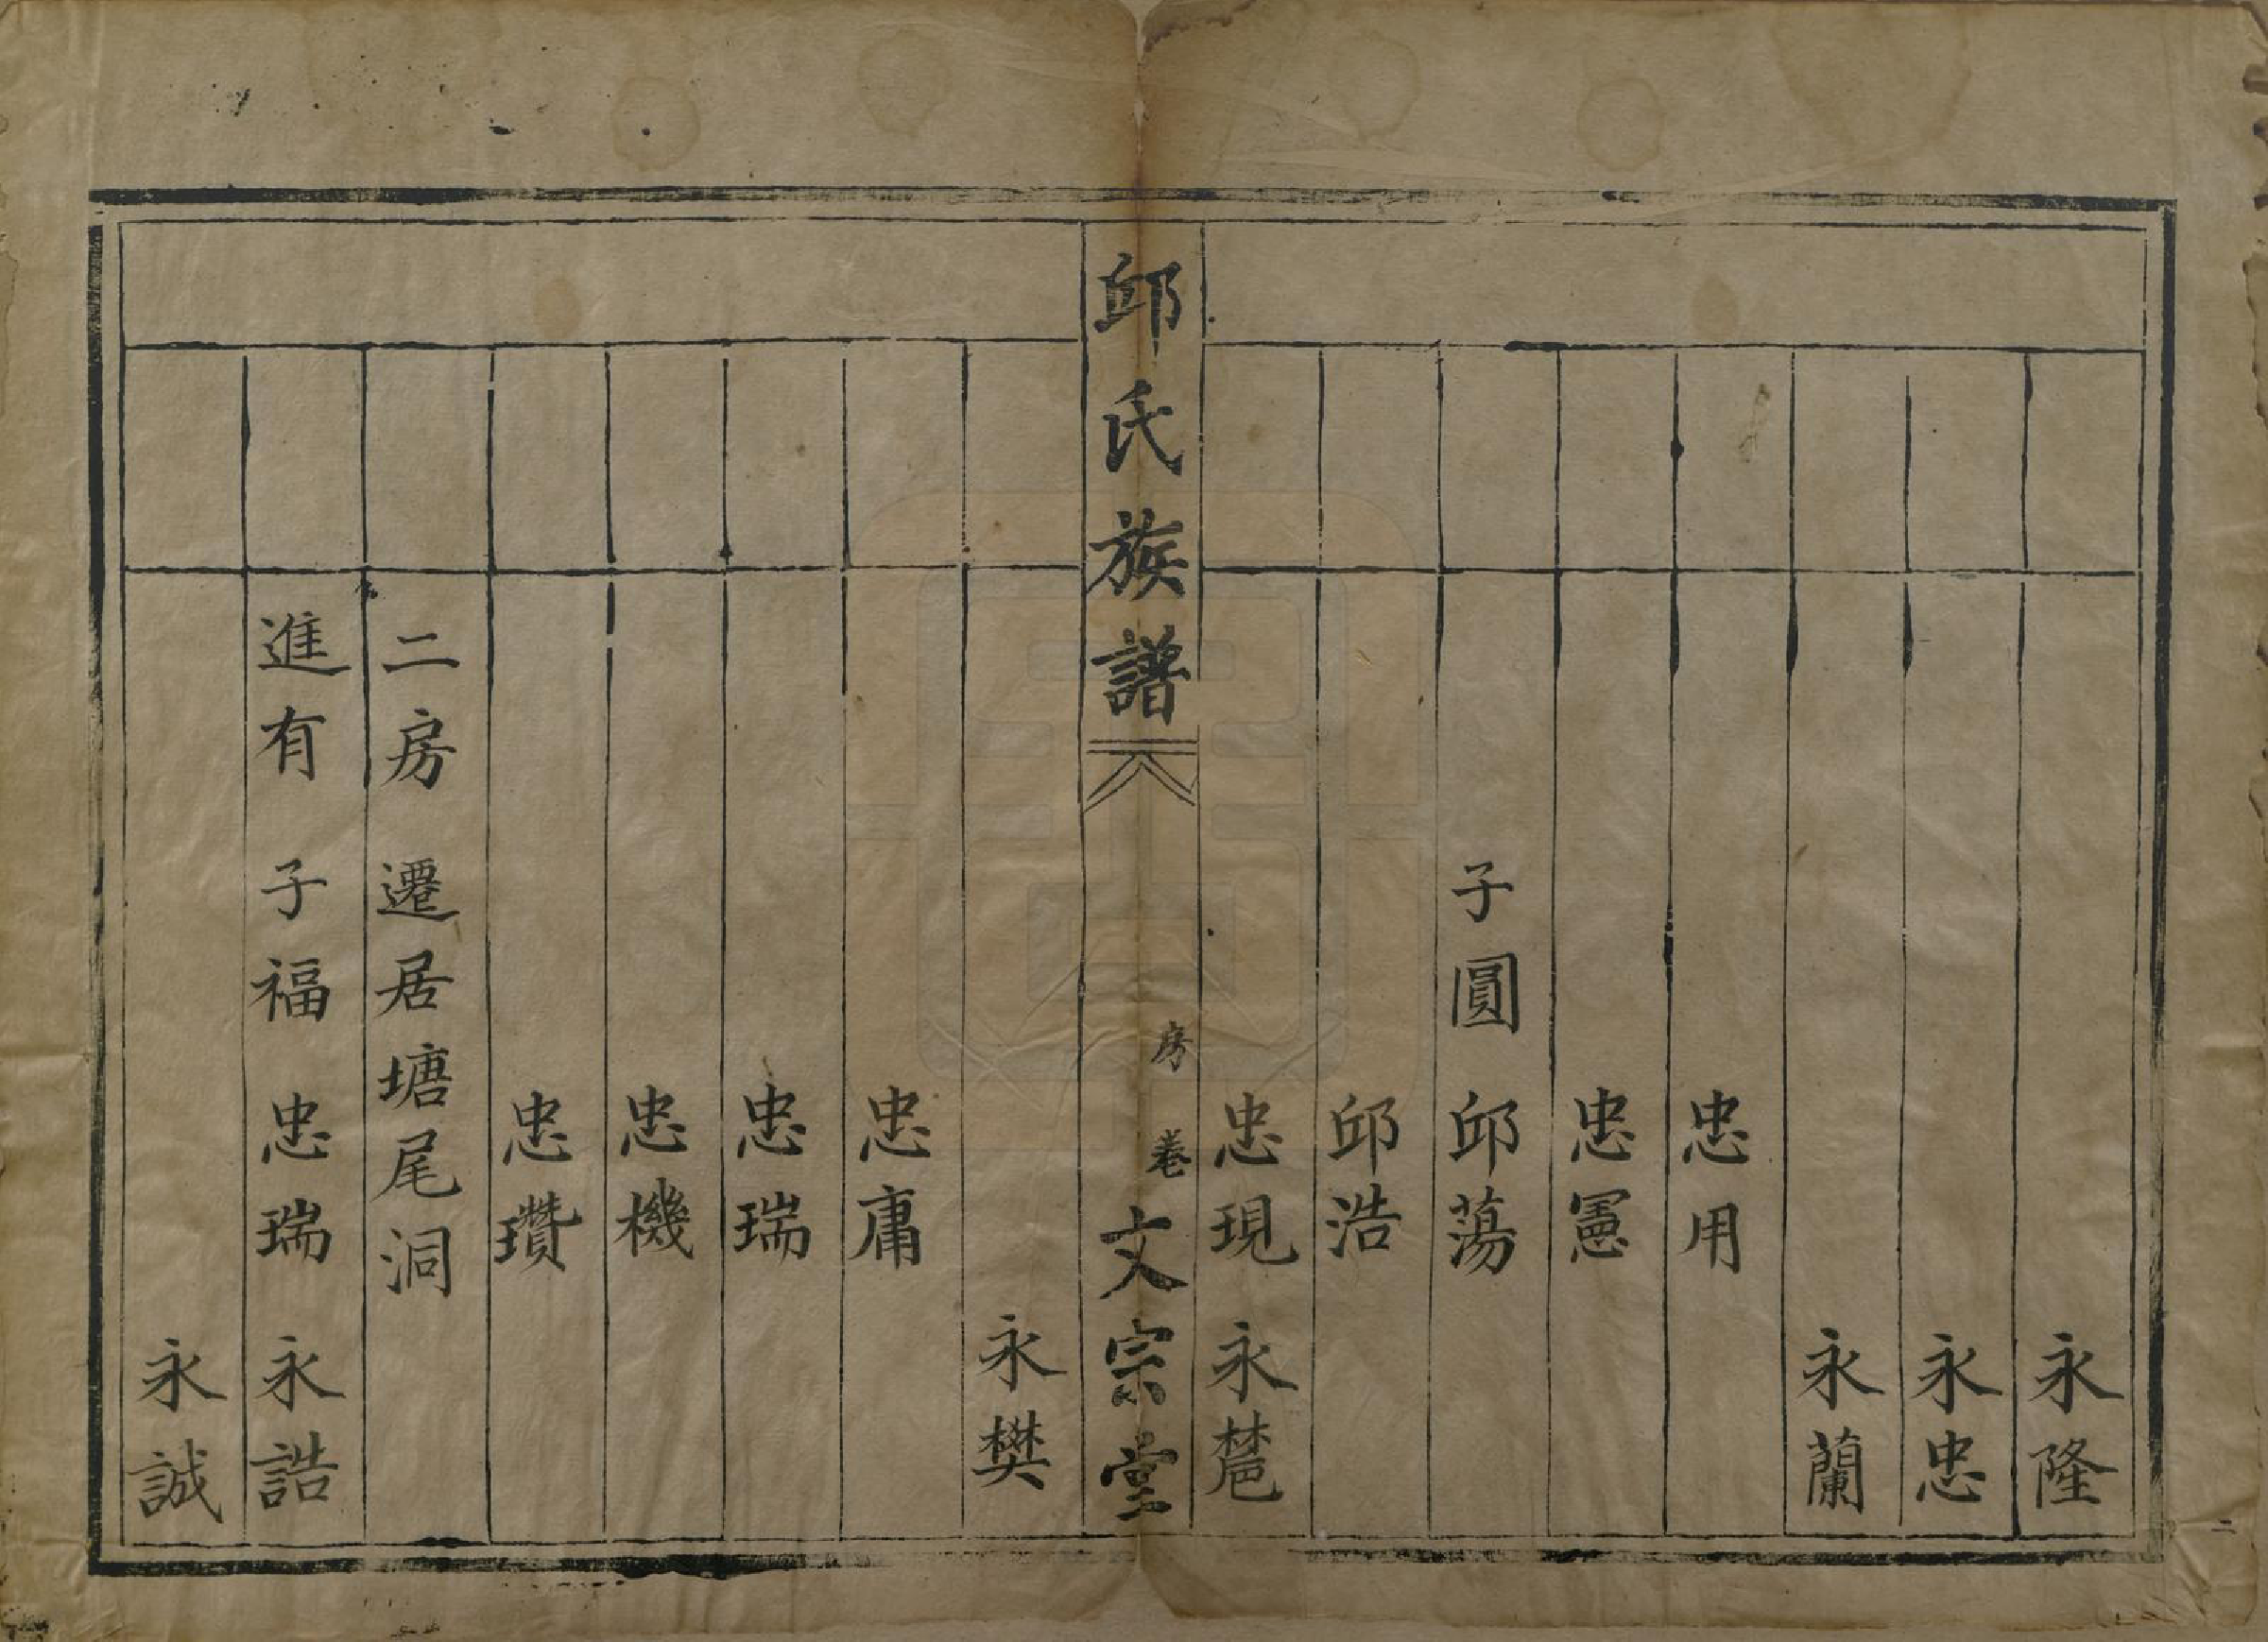 永隆
永忠
永蘭
忠用
忠憲
子圓 邱蕩
邱浩
忠現 永蓜
邱氏族譜 房 卷 文宗堂
永樊
忠庸
忠瑞
忠機
忠瓚
二房 遷居塘尾洞
進有 子福 忠瑞 永誥
永誠
二